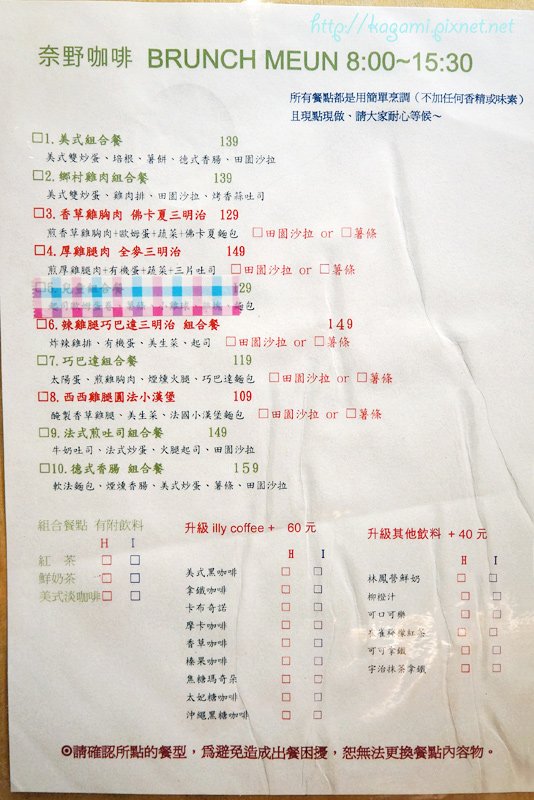 http://kagami.pixnet.net
奈野咖啡 BRUNCH MEUN 8:00~15:30
所有餐點都是用簡單烹調（不加任何香精或味素）
且現點現做、請大家耐心等候～
□1.美式組合餐 139
美式雙炒蛋、培根、薯餅、德式香腸、田園沙拉
□2.鄉村雞肉組合餐 139
美式雙炒蛋、雞肉排、田園沙拉、烤香蒜吐司
□3.香草雞胸肉 佛卡夏三明治 129
煎香草雞胸肉+歐姆蛋+蔬菜+佛卡夏麵包 □田園沙拉 or □薯條
□4.厚雞腿肉 全麥三明治 149
煎厚雞腿肉+有機蛋+蔬菜+三片吐司 □田園沙拉 or □薯條
兒童組合餐 129
麵包
□6.辣雞腿巧巴達三明治 組合餐 149
炸辣雞排、有機蛋、美生菜、起司 □田園沙拉 or □薯條
□7.巧巴達組合餐 119
太陽蛋、煎雞胸肉、煙燻火腿、巧巴達麵包 □田園沙拉 or □薯條
□8.西西雞腿圓法小漢堡 109
醃製香草雞腿、美生菜、法國小漢堡麵包 □田園沙拉 or □薯條
□9.法式煎吐司組合餐 149
牛奶吐司、法式炒蛋、火腿起司、田園沙拉
□10.德式香腸 組合餐 159
軟法麵包、煙燻香腸、美式炒蛋、薯條、田園沙拉
組合餐點 有附飲料
H I
紅 茶 □ □
鮮奶茶 □ □
美式淡咖啡 □ □
升級 illy coffee + 60 元
H I
美式黑咖啡 □ □
拿鐵咖啡 □ □
卡布奇諾 □ □
摩卡咖啡 □ □
香草咖啡 □ □
榛果咖啡 □ □
焦糖瑪奇朵 □ □
太妃糖咖啡 □ □
沖繩黑糖咖啡 □ □
升級其他飲料 + 40 元
H I
林鳳營鮮奶 □ □
柳橙汁 □ □
可口可樂 □ □
孔雀檸檬紅茶 □ □
可可拿鐵 □ □
宇治抹茶拿鐵 □ □
⊙請確認所點的餐型，為避免造成出餐困擾，恕無法更換餐點內容物。